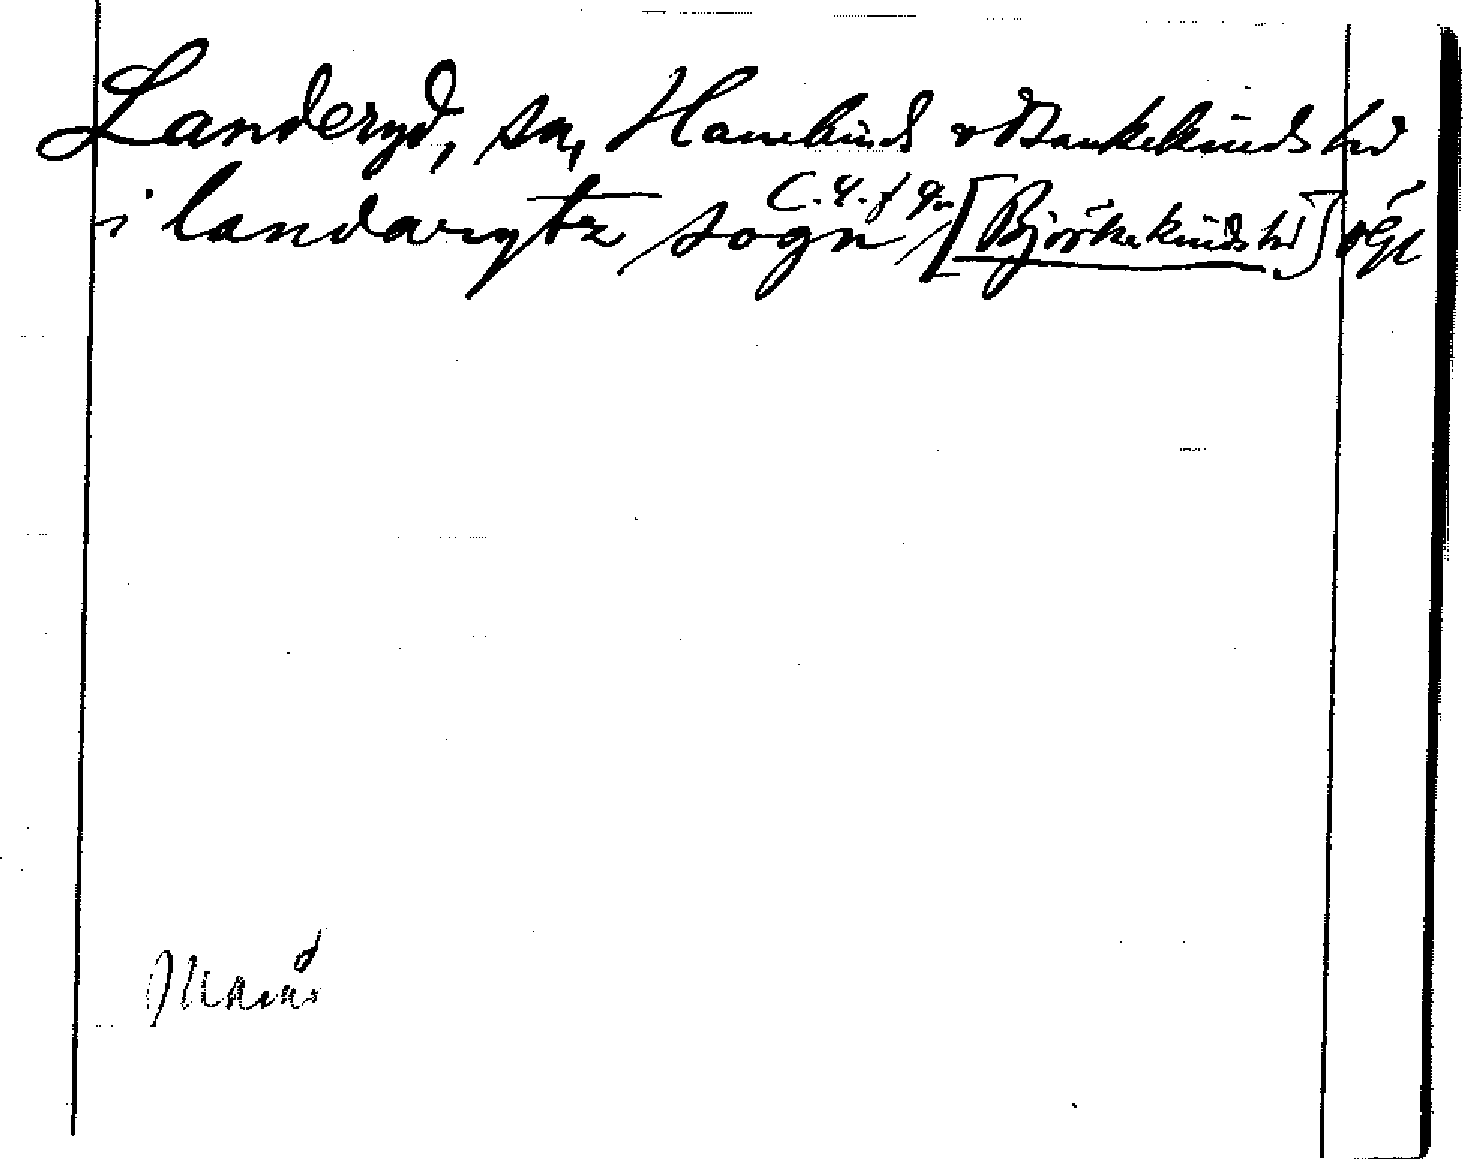 Landeryd, sn, Hanekinds o Bankekinds hd
i landarytz sogn [Björkekinds hd] Ögl